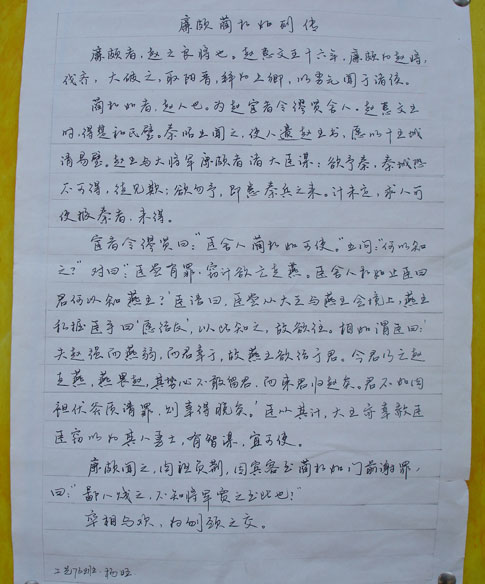 廉颇蔺相如列传
廉颇者，赵之良将也。赵惠文王十六年，廉颇为赵将，
伐齐，大破之，取阳晋，拜为上卿，以勇气闻于诸侯。
蔺相如者，赵人也。为赵宦者令缪贤舍人。赵惠文王
时，得楚和氏璧。秦昭王闻之，使人遗赵王书，愿以十五城
请易璧。赵王与大将军廉颇者诸大臣谋：欲予秦，秦城恐
不可得，徒见欺；欲勿予，即患秦兵之来。计未定，求人可
使报秦者，未得。
宦者令缪贤曰：“臣舍人蔺相如可使。”王问：“何以知
之？”对曰：“臣尝有罪，窃计欲亡走燕。臣舍人相如止臣曰
君何以知燕王？’臣语曰，臣尝从大王与燕王会境上，燕王
私握臣手曰‘愿结友’，以此知之，故欲往。相如谓臣曰：‘
夫赵强而燕弱，而君幸于，故燕王欲结于君。今君乃亡赵
走燕，燕畏赵，其势必不敢留君，而束君归赵矣。君不如肉
袒伏斧质请罪，则幸得脱矣。’臣从其计，大王亦幸赦臣
臣窃以为其人勇士，有智谋，宜可使。
廉颇闻之，肉袒负荆，因宾客至蔺相如门前谢罪，
曰：“鄙人贱之，不知将军宽之至此也！”
卒相与欢，为刎颈之交。